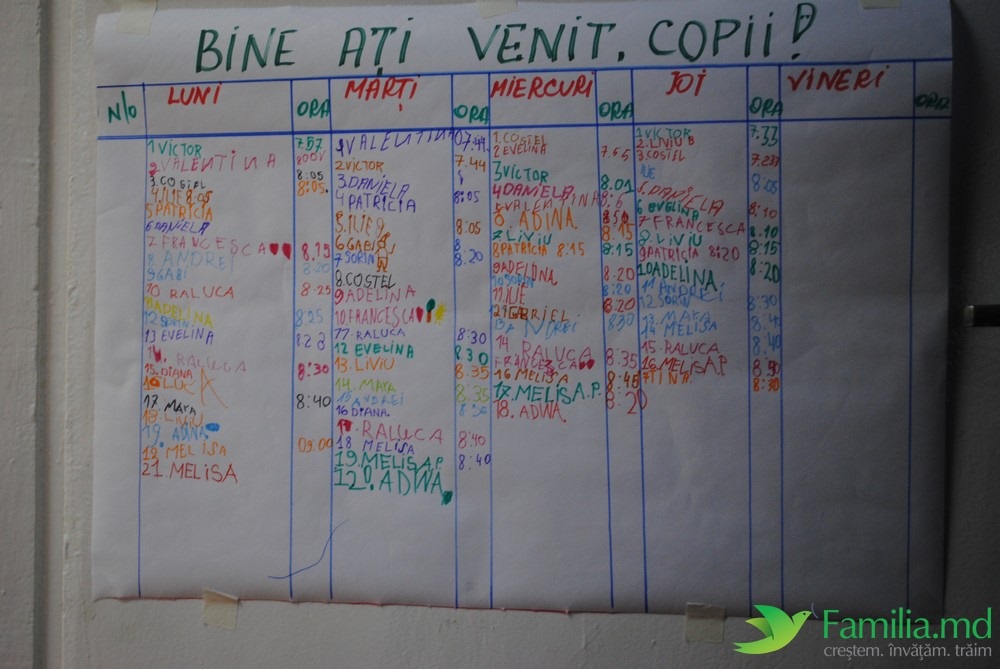 BINE AȚI VENIT, COPII!
N/O LUNI ORA MARȚI ORA MIERCURI ORA JOI ORA VINERI ORA
1 VICTOR 7.57
2 VALENTINA
3. COSTEL 8:05
4. ILIE 8.05 8:05.
5 PATRICIA
6 DANIELA
7 FRANCESCA 8.19
8. ANDREI 8:20
9 GABI
10 RALUCA 8:25
ADELINA
12 SORIN 8:25
13 EVELINA
RALUCA
15. DIANA 8:30
LUCA
17. MARA 8:40
18. LIVIU
19. ADINA
MELISA 09:00
21. MELISA
1 VALENTINA 07.44
2 VICTOR 7.44
3. DANIELA
4 PATRICIA 8:05
5. ILIE
6 GABI 8:05
7 SORIN 8:20
8. COSTEL
9 ADELINA
10. FRANCESCA
11. RALUCA 8:30
12 EVELINA 8.30
13. LIVIU 8.35
14. MARA 8:35
ANDREI
16 DIANA
RALUCA 8:40
18 MELISA
19. MELISA P. 8:40
ADINA
1. COSTEL
2 EVELINA
3 VICTOR 8.01
4 DANIELA
VALENTINA
6. ADINA
7 LIVIU 8:15
8 PATRICIA 8:15 8:15
9 ADELINA 8.20
10 SORIN 8:20
11. ILIE 8:20
12 GABRIEL
ANDREI
14. RALUCA
FRANCESCA 8:35
16 MELISA 8:45
17. MELISA P. 8:20
18. ADINA
1 VICTOR 7.33
2. LIVIU B
3 COSTEL
ILIE 8:05
5. DANIELA
6 EVELINA 8:10
7 FRANCESCA 8.10
8. LIVIU 8:15
9 PATRICIA 8:20
10 ADELINA 8:20
11 ANDREI
12 SORIN 8:30
13. MARA
14 MELISA 8.40
15. RALUCA
16. MELISA P.
TINA 8:30
Familia.md
creștem. învățăm. trăim